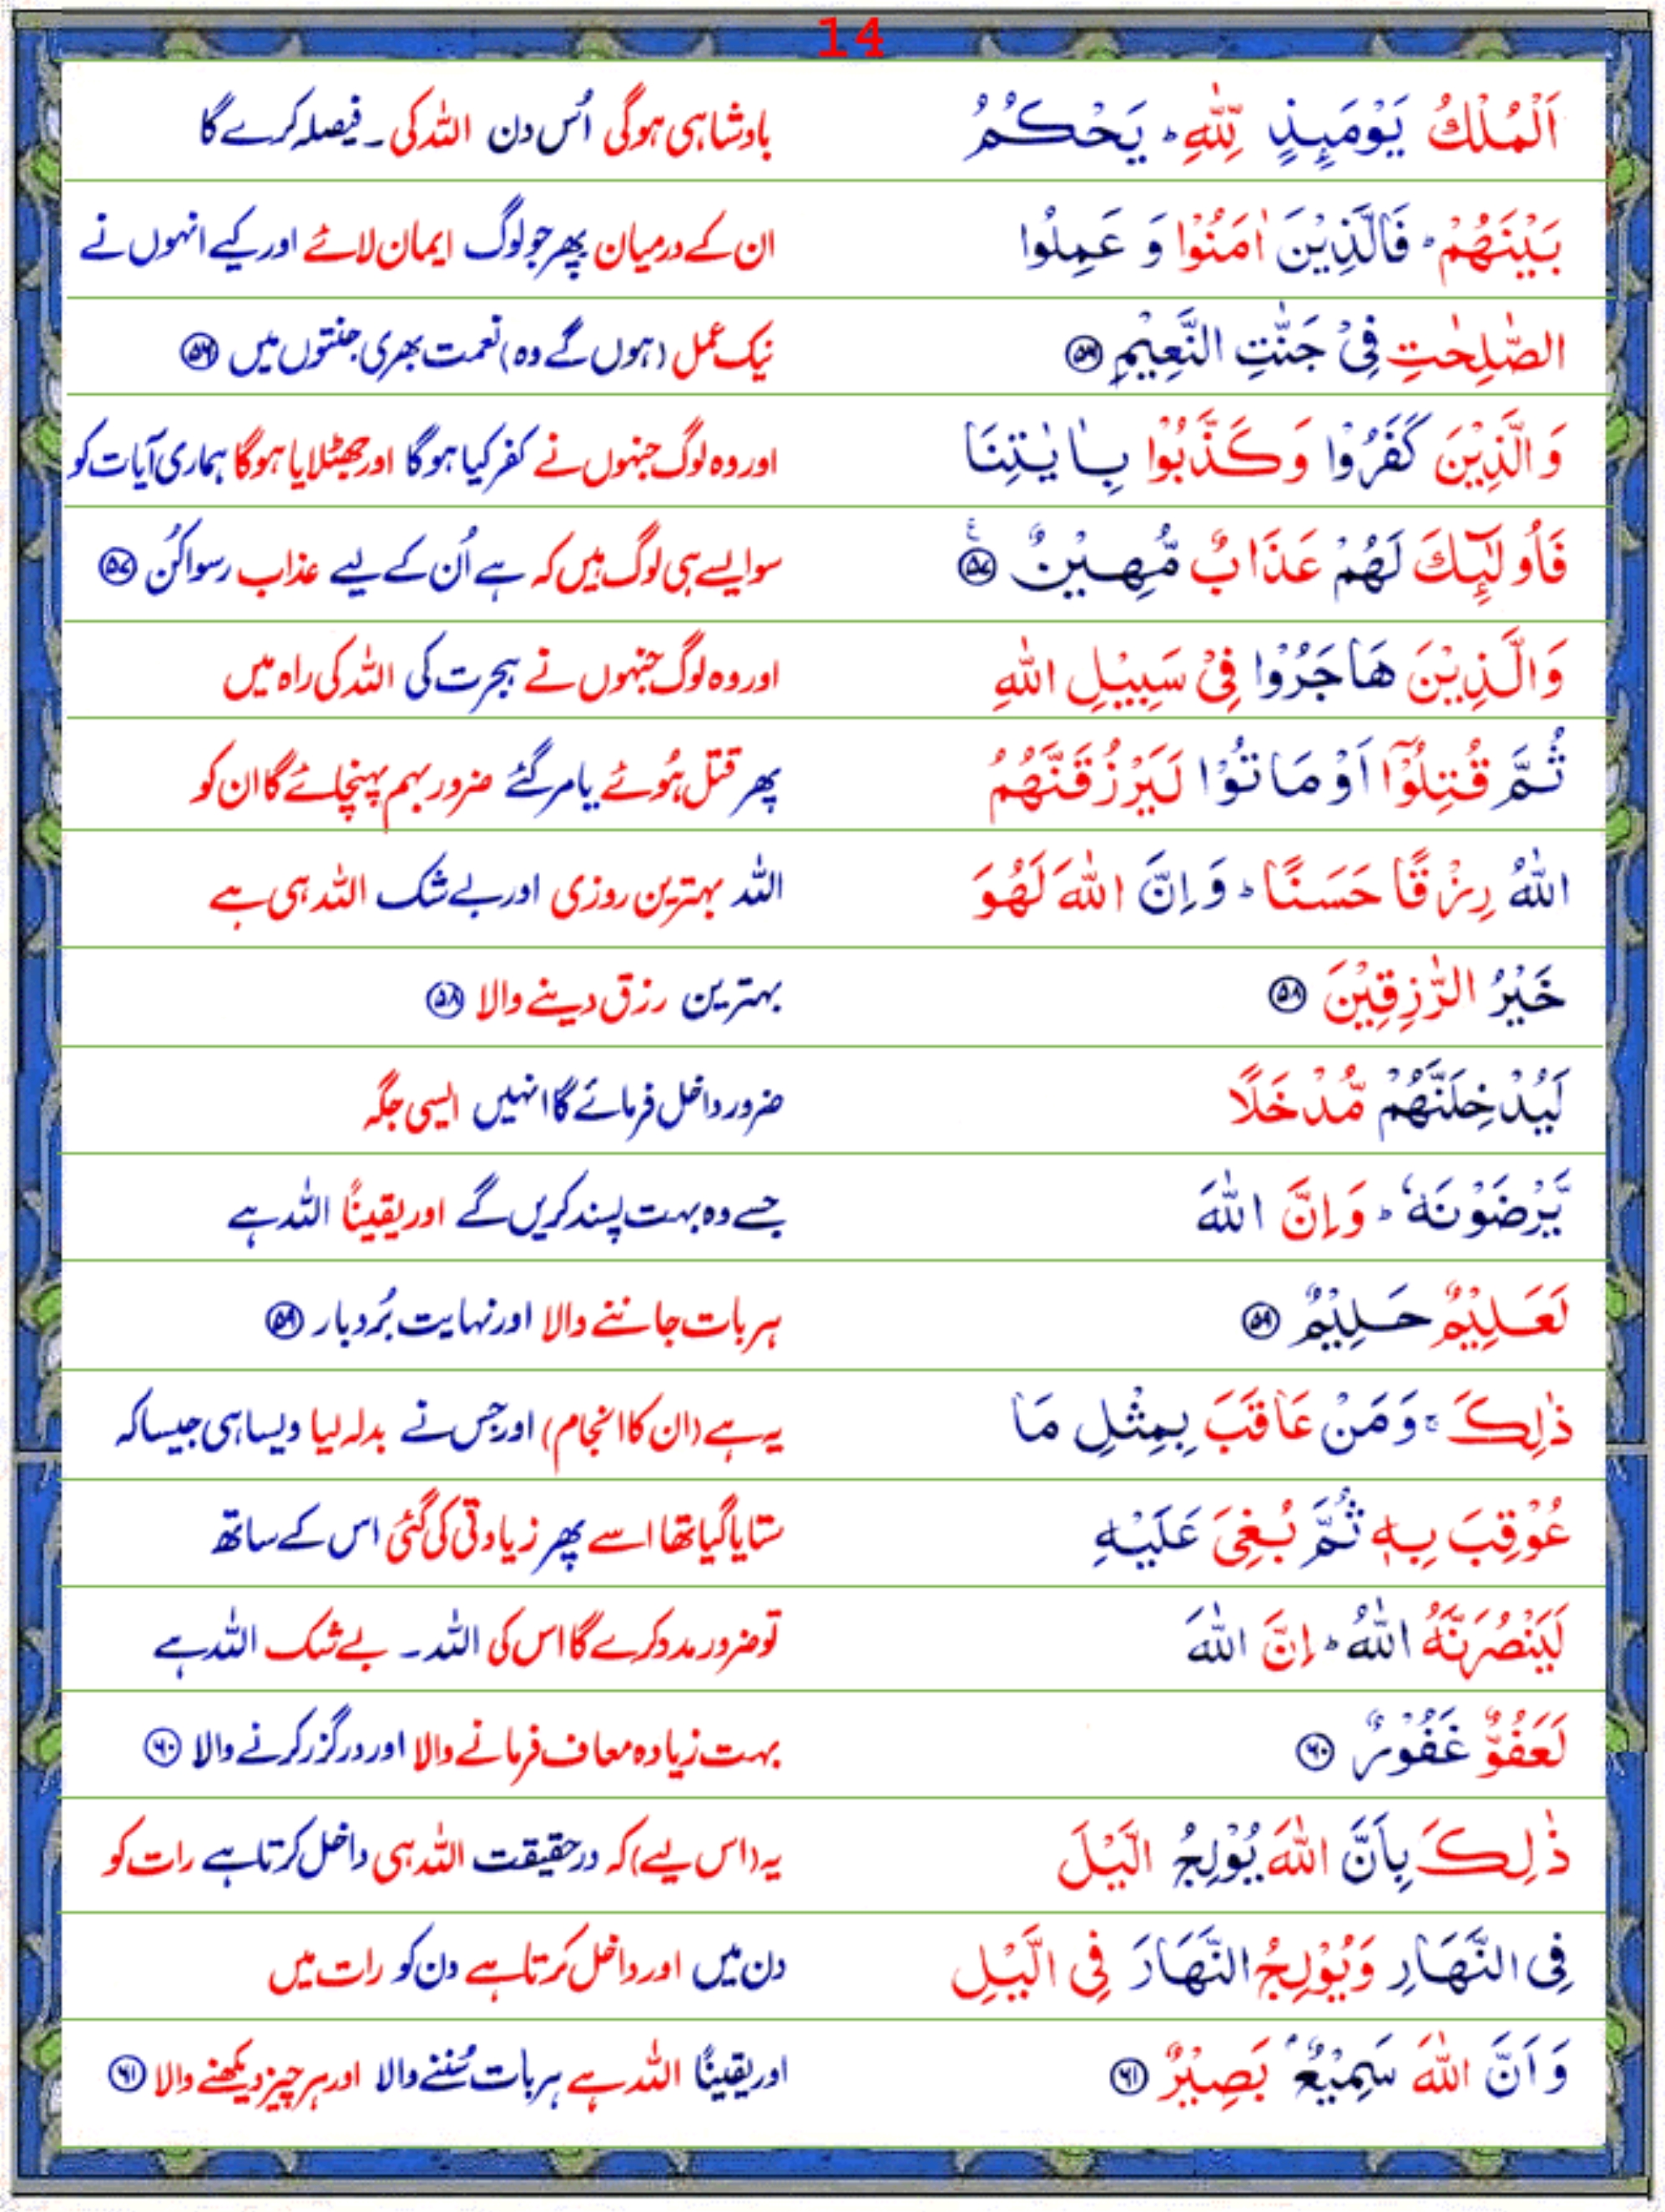 14
اَلْمُلْكُ يَوْمَىِٕذٍ لِّلّٰهِ ؕ يَحْكُمُ بادشاہی ہوگی اُس دن اللہ کی ۔ فیصلہ کرے گا
بَيْنَهُمْ ؕ فَالَّذِيْنَ اٰمَنُوْا وَ عَمِلُوا ان کے درمیان پھر جو لوگ ایمان لائے اور کیے انہوں نے
الصّٰلِحٰتِ فِىْ جَنّٰتِ النَّعِيْمِ ﴿۵۶﴾ نیک عمل (ہوں گے وہ) نعمت بھری جنتوں میں ﴿۵۶﴾
وَالَّذِيْنَ كَفَرُوْا وَكَذَّبُوْا بِاٰيٰتِنَا اور وہ لوگ جنہوں نے کفر کیا ہوگا اور جھٹلایا ہوگا ہماری آیات کو
فَاُولٰٓىِٕكَ لَهُمْ عَذَابٌ مُّهِيْنٌ ﴿۵۷﴾ ع سو ایسے ہی لوگ ہیں کہ ہے اُن کے لیے عذاب رسوا کُن ﴿۵۷﴾
وَالَّذِيْنَ هَاجَرُوْا فِىْ سَبِيْلِ اللّٰهِ اور وہ لوگ جنہوں نے ہجرت کی اللہ کی راہ میں
ثُمَّ قُتِلُوْۤا اَوْ مَاتُوْا لَيَرْزُقَنَّهُمُ پھر قتل ہُوئے یا مر گئے ضرور بہم پہنچائے گا ان کو
اللّٰهُ رِزْقًا حَسَنًا ؕ وَاِنَّ اللّٰهَ لَهُوَ اللہ بہترین روزی اور بے شک اللہ ہی ہے
خَيْرُ الرّٰزِقِيْنَ ﴿۵۸﴾ بہترین رزق دینے والا ﴿۵۸﴾
لَيُدْخِلَنَّهُمْ مُّدْخَلًا ضرور داخل فرمائے گا انہیں ایسی جگہ
يَّرْضَوْنَهٗ ؕ وَاِنَّ اللّٰهَ جسے وہ بہت پسند کریں گے اور یقیناً اللہ ہے
لَعَلِيْمٌ حَلِيْمٌ ﴿۵۹﴾ ہر بات جاننے والا اور نہایت بُردبار ﴿۵۹﴾
ذٰلِكَ ۚ وَمَنْ عَاقَبَ بِمِثْلِ مَا یہ ہے (ان کا انجام) اور جس نے بدلہ لیا ویسا ہی جیسا کہ
عُوْقِبَ بِهٖ ثُمَّ بُغِىَ عَلَيْهِ ستایا گیا تھا اسے پھر زیادتی کی گئی اس کے ساتھ
لَيَنْصُرَنَّهُ اللّٰهُ ؕ اِنَّ اللّٰهَ تو ضرور مدد کرے گا اس کی اللہ ۔ بے شک اللہ ہے
لَعَفُوٌّ غَفُوْرٌ ﴿۶۰﴾ بہت زیادہ معاف فرمانے والا اور درگزر کرنے والا ﴿۶۰﴾
ذٰلِكَ بِاَنَّ اللّٰهَ يُوْلِجُ الَّيْلَ یہ (اس لیے) کہ درحقیقت اللہ ہی داخل کرتا ہے رات کو
فِى النَّهَارِ وَيُوْلِجُ النَّهَارَ فِى الَّيْلِ دن میں اور داخل کرتا ہے دن کو رات میں
وَاَنَّ اللّٰهَ سَمِيْعٌۢ بَصِيْرٌ ﴿۶۱﴾ اور یقیناً اللہ ہے ہر بات سُننے والا اور ہر چیز دیکھنے والا ﴿۶۱﴾